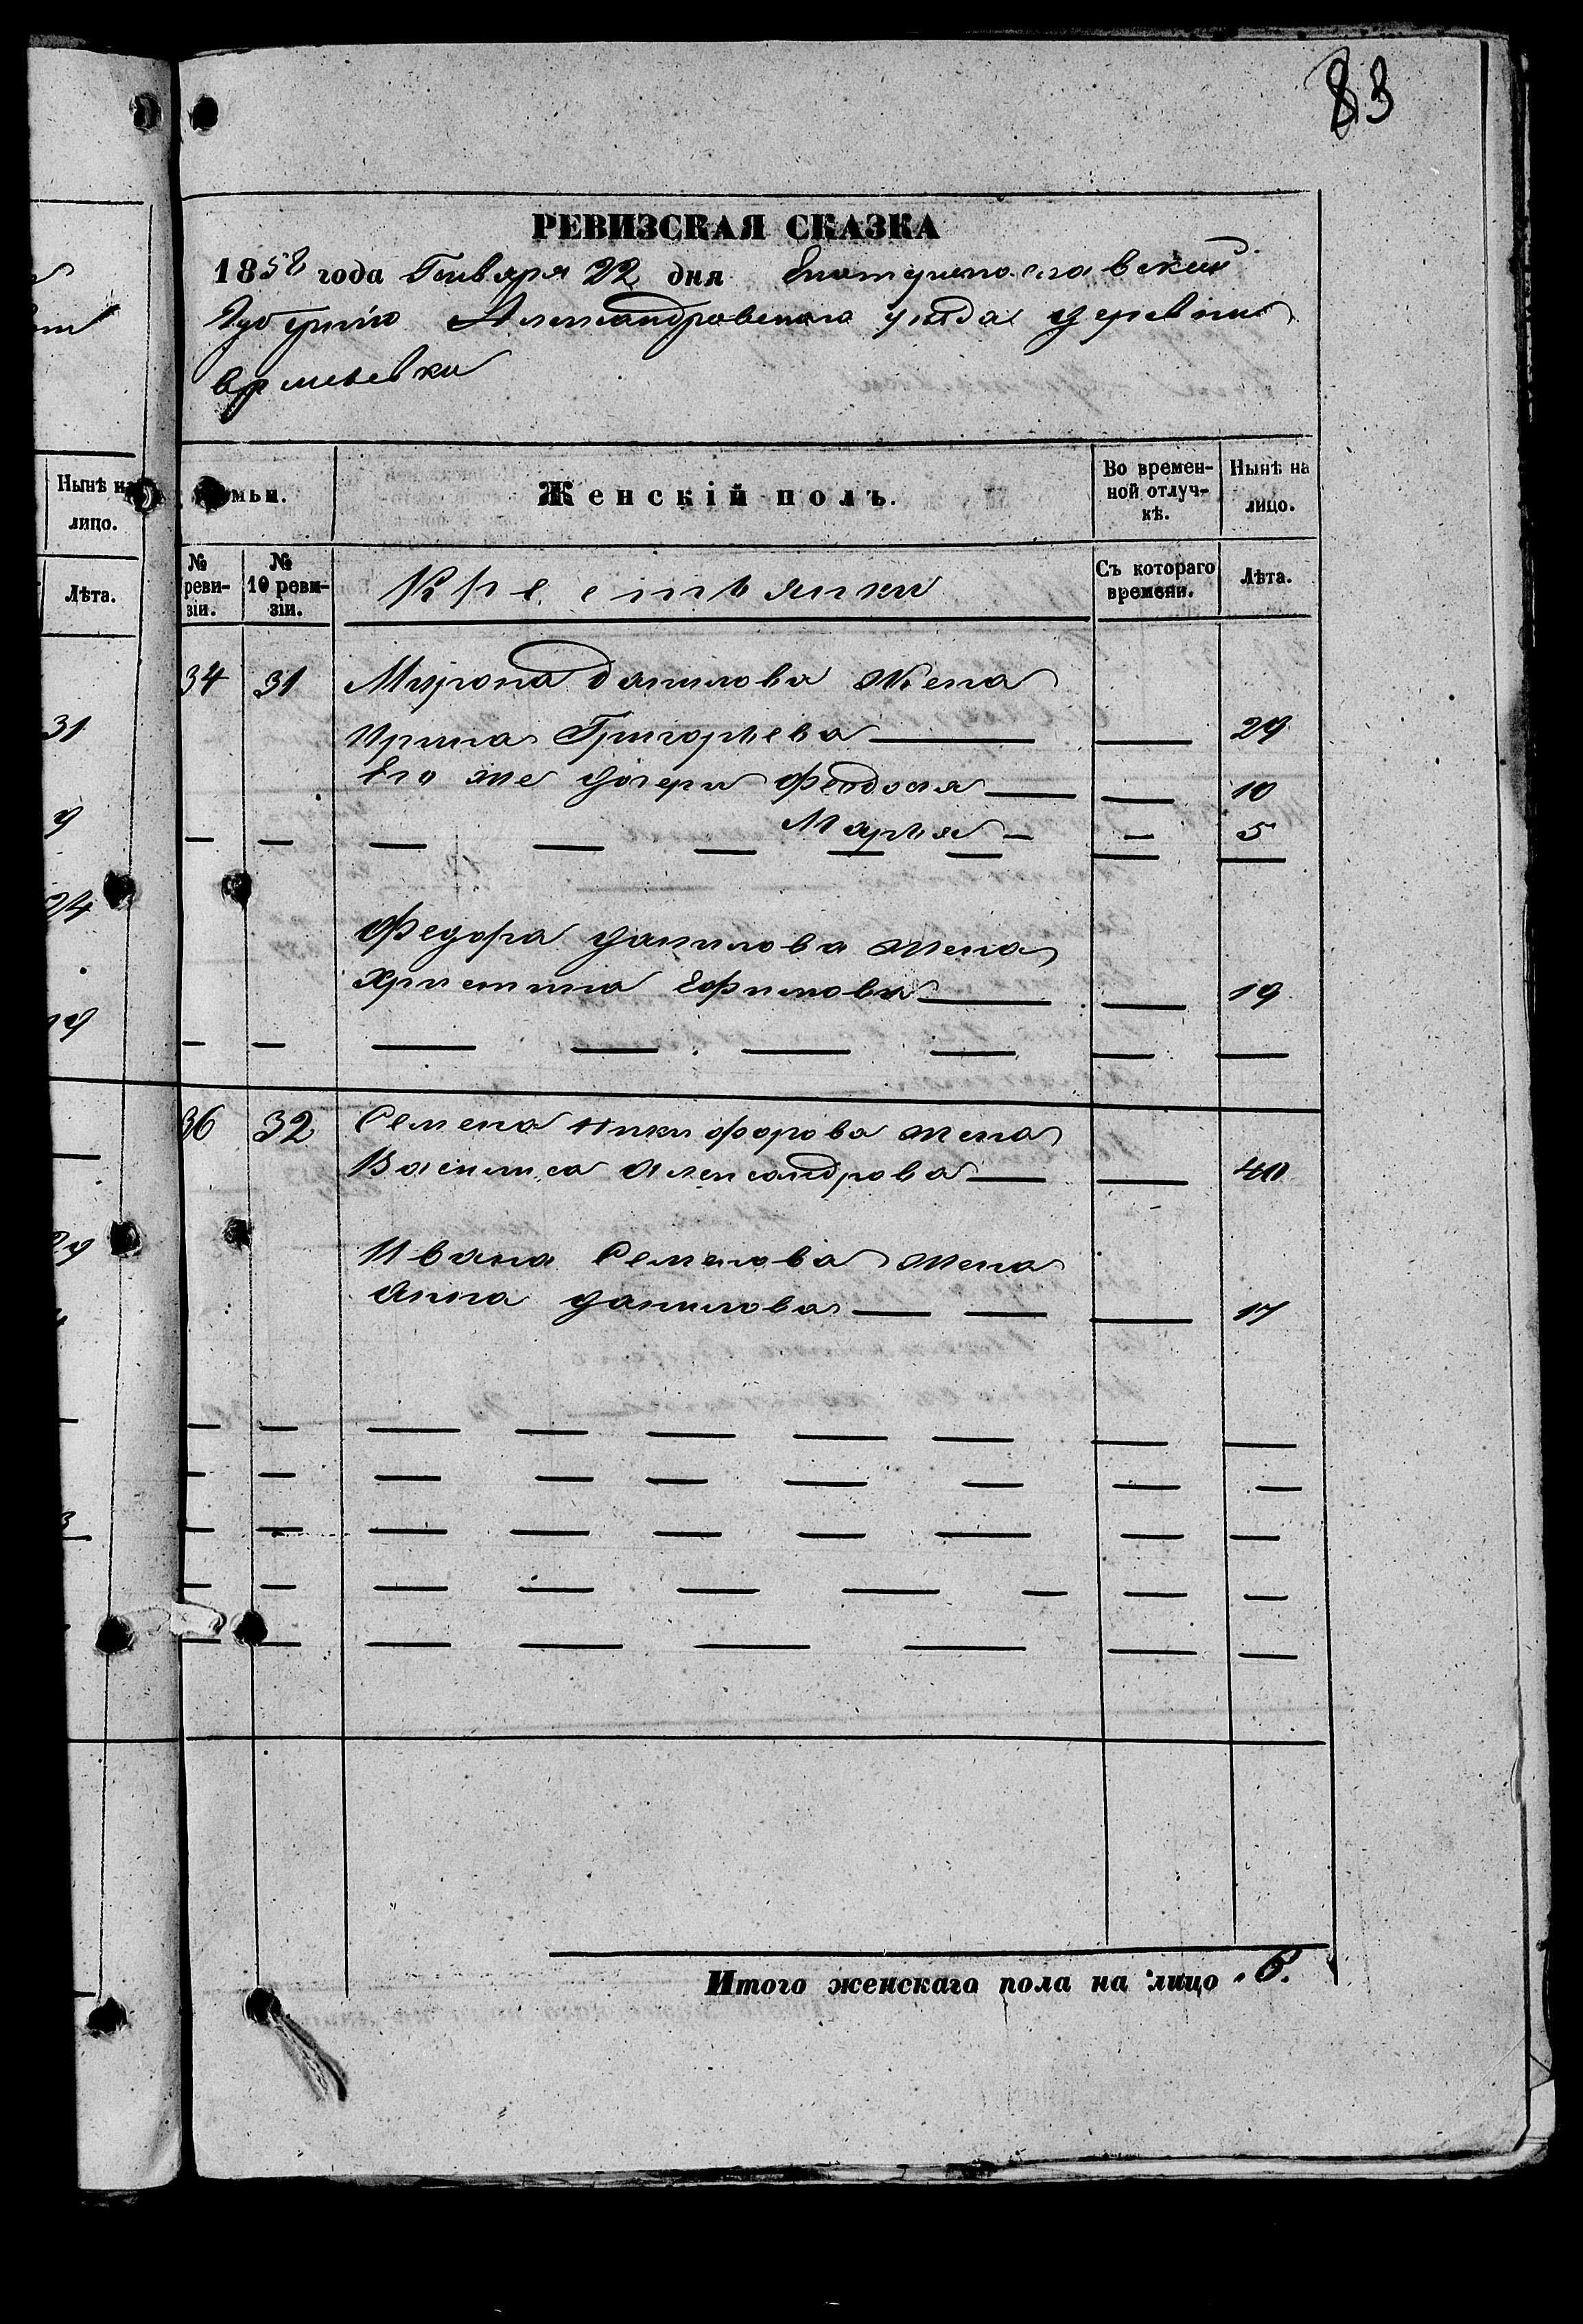 83
РЕВИЗСКАЯ СКАЗКА
1858 года Генваря 22 дня Екатеринославской
Губернии Александровского уѣзда деревни
Времьевки
Нынѣ на
лицо.
Лѣта.
31
9
24
19
29
мьи.
Женскій полъ.
Во времен-
ной отлуч-
кѣ.
Нынѣ на
лицо.
№
реви-
зіи.
№
10 реви-
зіи.
Крестьянки
Съ котораго
времени.
Лѣта.
34 31 Мирона Данилова жена
Ирина Григорьева — — 29
Его же дочери Феодосия — — 10
Марья — — 5
Федора Данилова жена
Христина Ефимова — — 19
36 32 Семена Никифорова жена
Василиса Александрова — — 40
Ивана Семенова жена
Анна Данилова — — — 17
Итого женскаго пола на лицо 6.